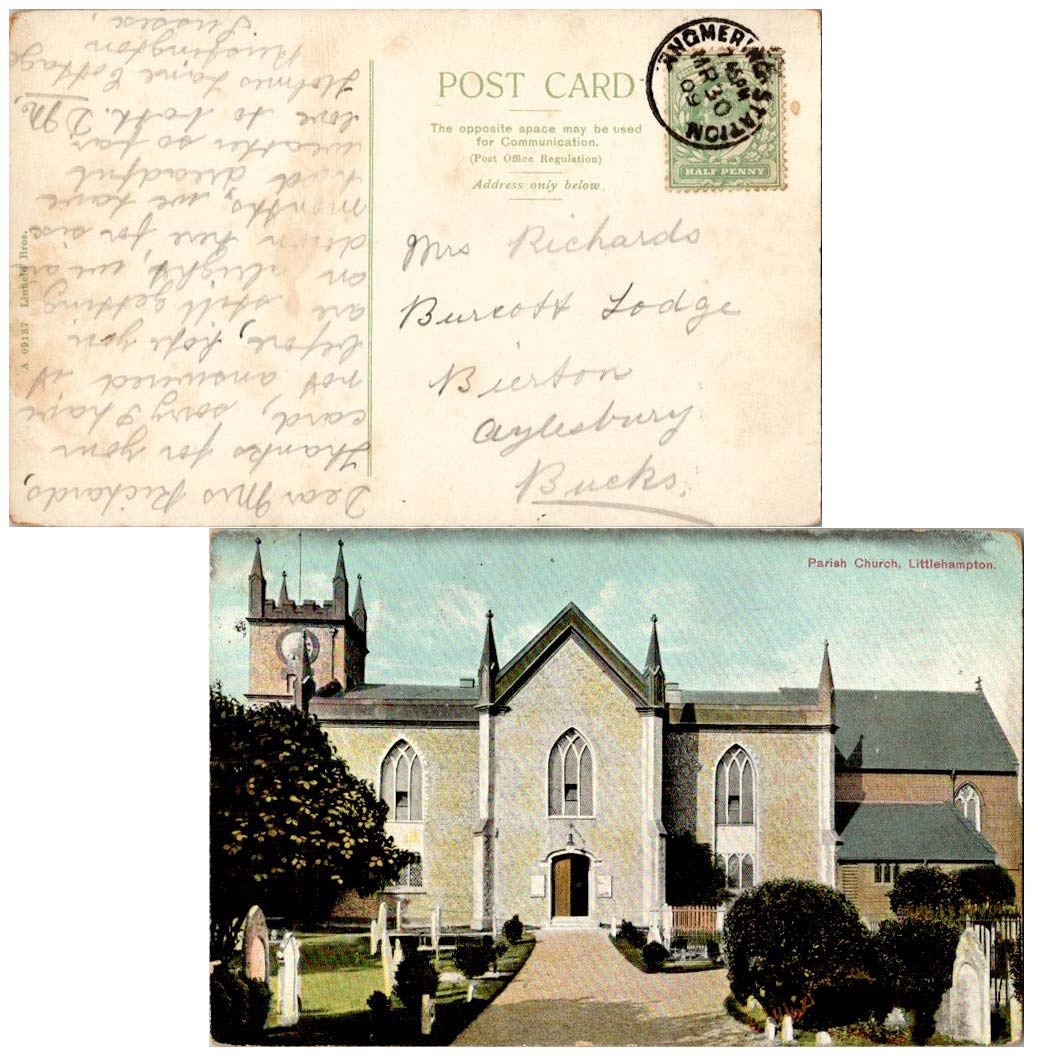 POST CARD
The opposite space may be used
for Communication.
(Post Office Regulation)
Address only below
ANGMERING STATION
7 45PM
MR 30
09
HALF PENNY
Mrs Richards
Burcott Lodge
Bierton
Aylesbury
Bucks.
Dear Mrs Richards,
Thanks for your
card, sorry I have
not answered it
before, hope you
are still getting
on alright, we are
down here for six
months, we have
had dreadful
weather so far
love to both. D.M.
Holmes Lane Cottage
Rustington
Sussex
A 09137 Linfield Bros.
Parish Church, Littlehampton.